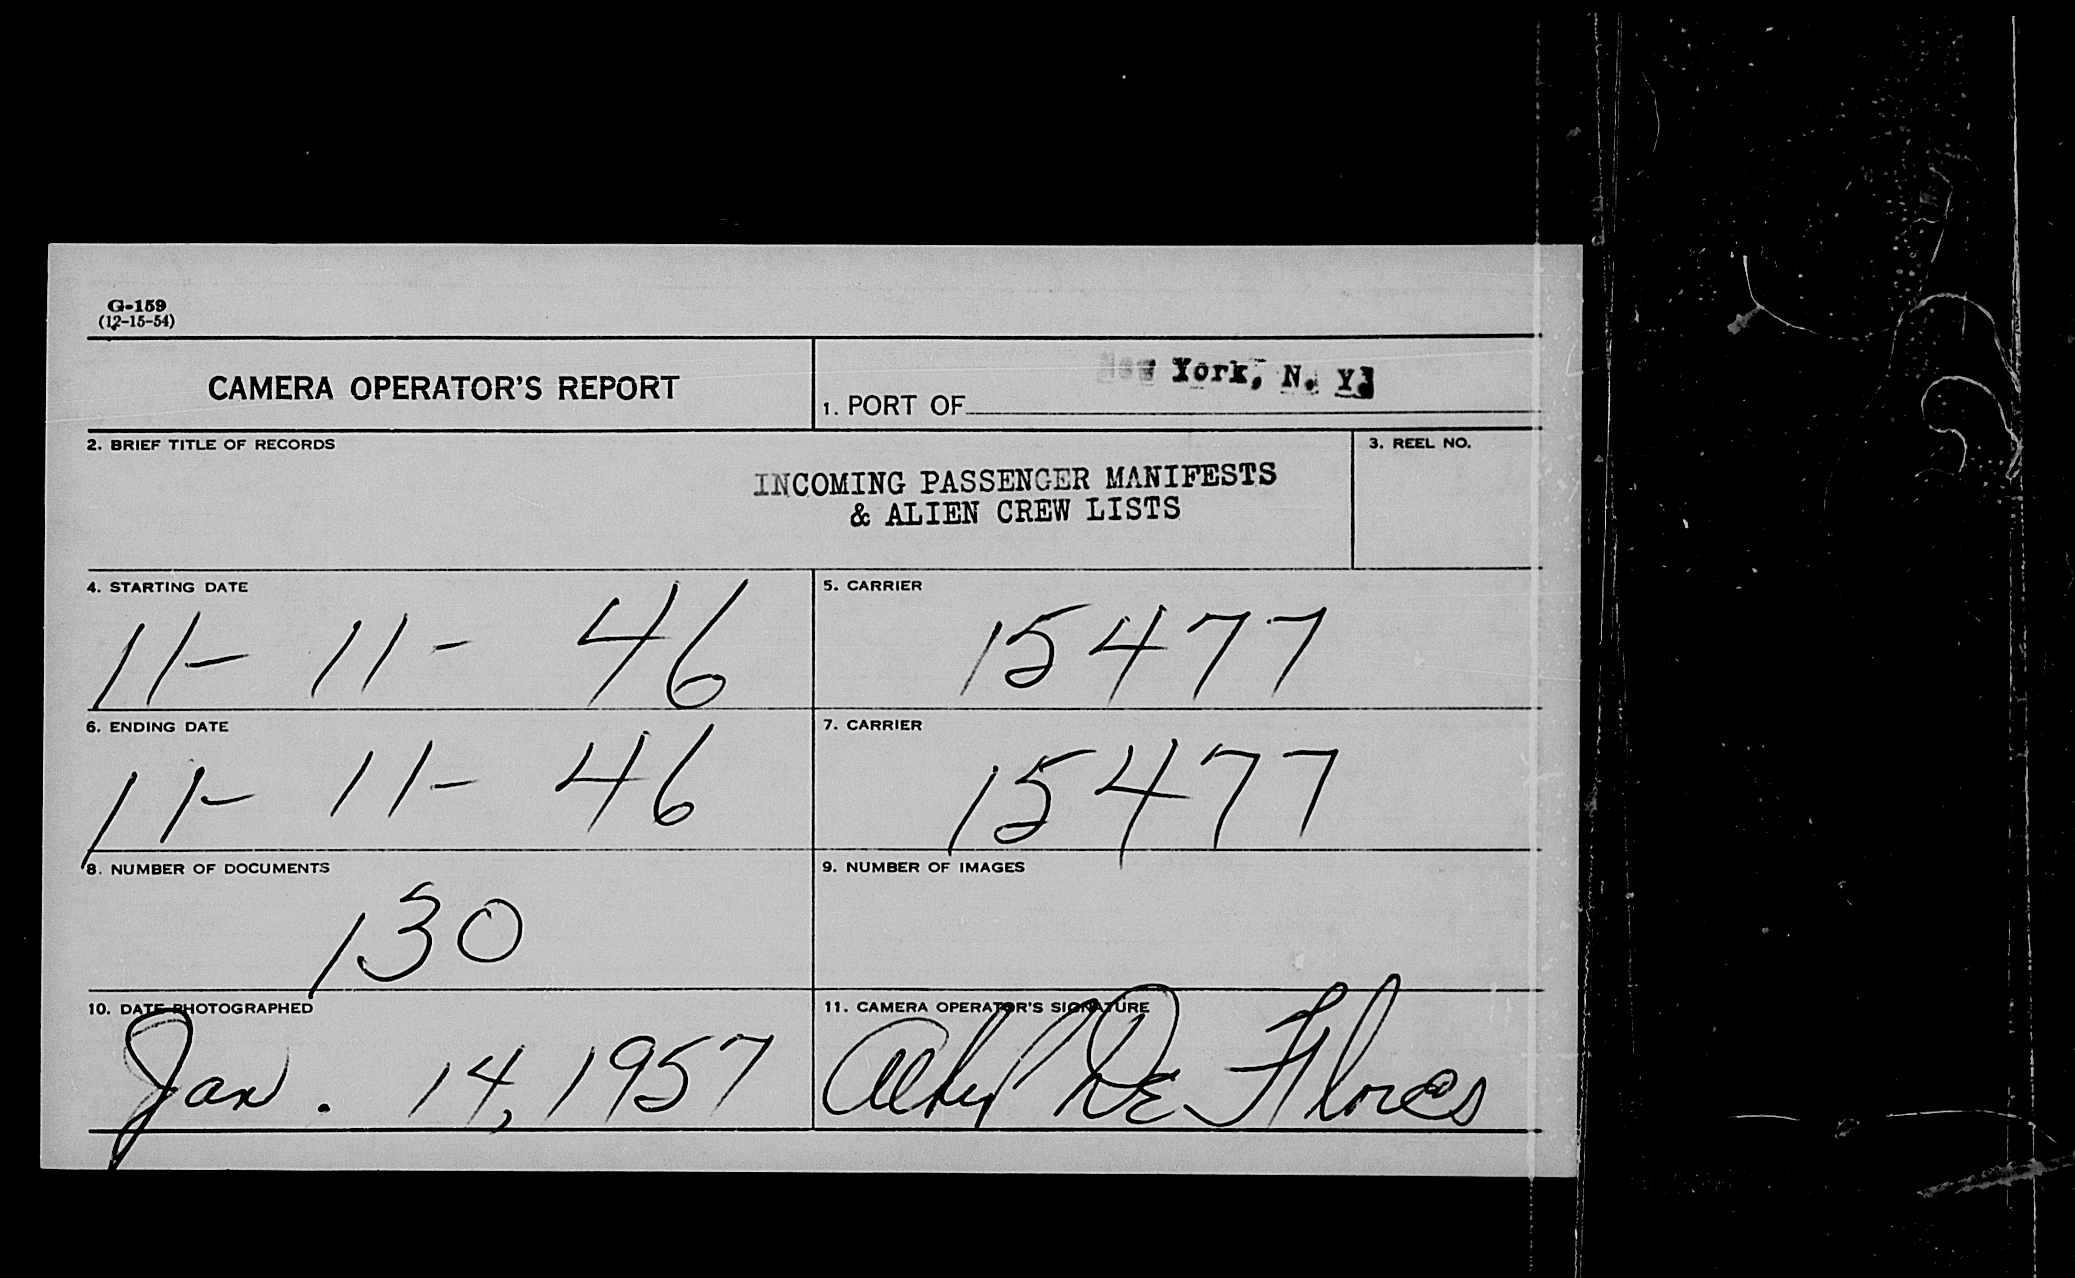 G-159
(12-15-54)
CAMERA OPERATOR'S REPORT
1. PORT OF New York, N. Y.
2. BRIEF TITLE OF RECORDS
INCOMING PASSENGER MANIFESTS
& ALIEN CREW LISTS
3. REEL NO.
4. STARTING DATE
11- 11- 46
5. CARRIER
15477
6. ENDING DATE
11- 11- 46
7. CARRIER
15477
8. NUMBER OF DOCUMENTS
130
9. NUMBER OF IMAGES
10. DATE PHOTOGRAPHED
Jan. 14, 1957
11. CAMERA OPERATOR'S SIGNATURE
De Flores